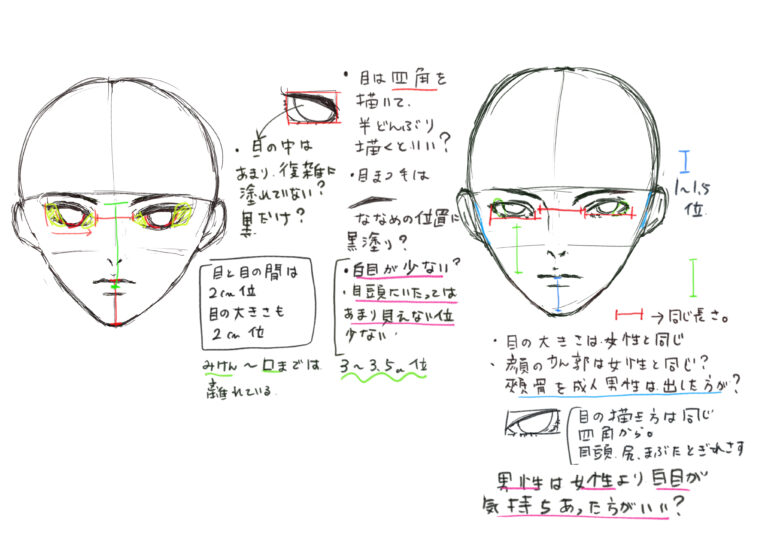 ・目の中は
あまり、復雑に
塗れていない?
黒だけ?
・目は四角を
描いて、
半どんぶり
描くといい?
・目まつもは
ななめの位置に
黒塗り?
目と目の間は
2cm位
目の大きさも
2cm位
みけん〜口までは
離れている
・白目が少ない?
・目頭にいたっては
あまり見えない位
少ない
3〜3.5cm位
1〜1.5
位
→同じ長さ。
・目の大きさは女性と同じ
・顔のりん郭は女性と同じ?
頬骨を成人男性は出した方が?
目の描き方は同じ
四角から。
目頭、尻、まぶたとぎれさす
男性は女性より白目が
気持ちあった方がいい?